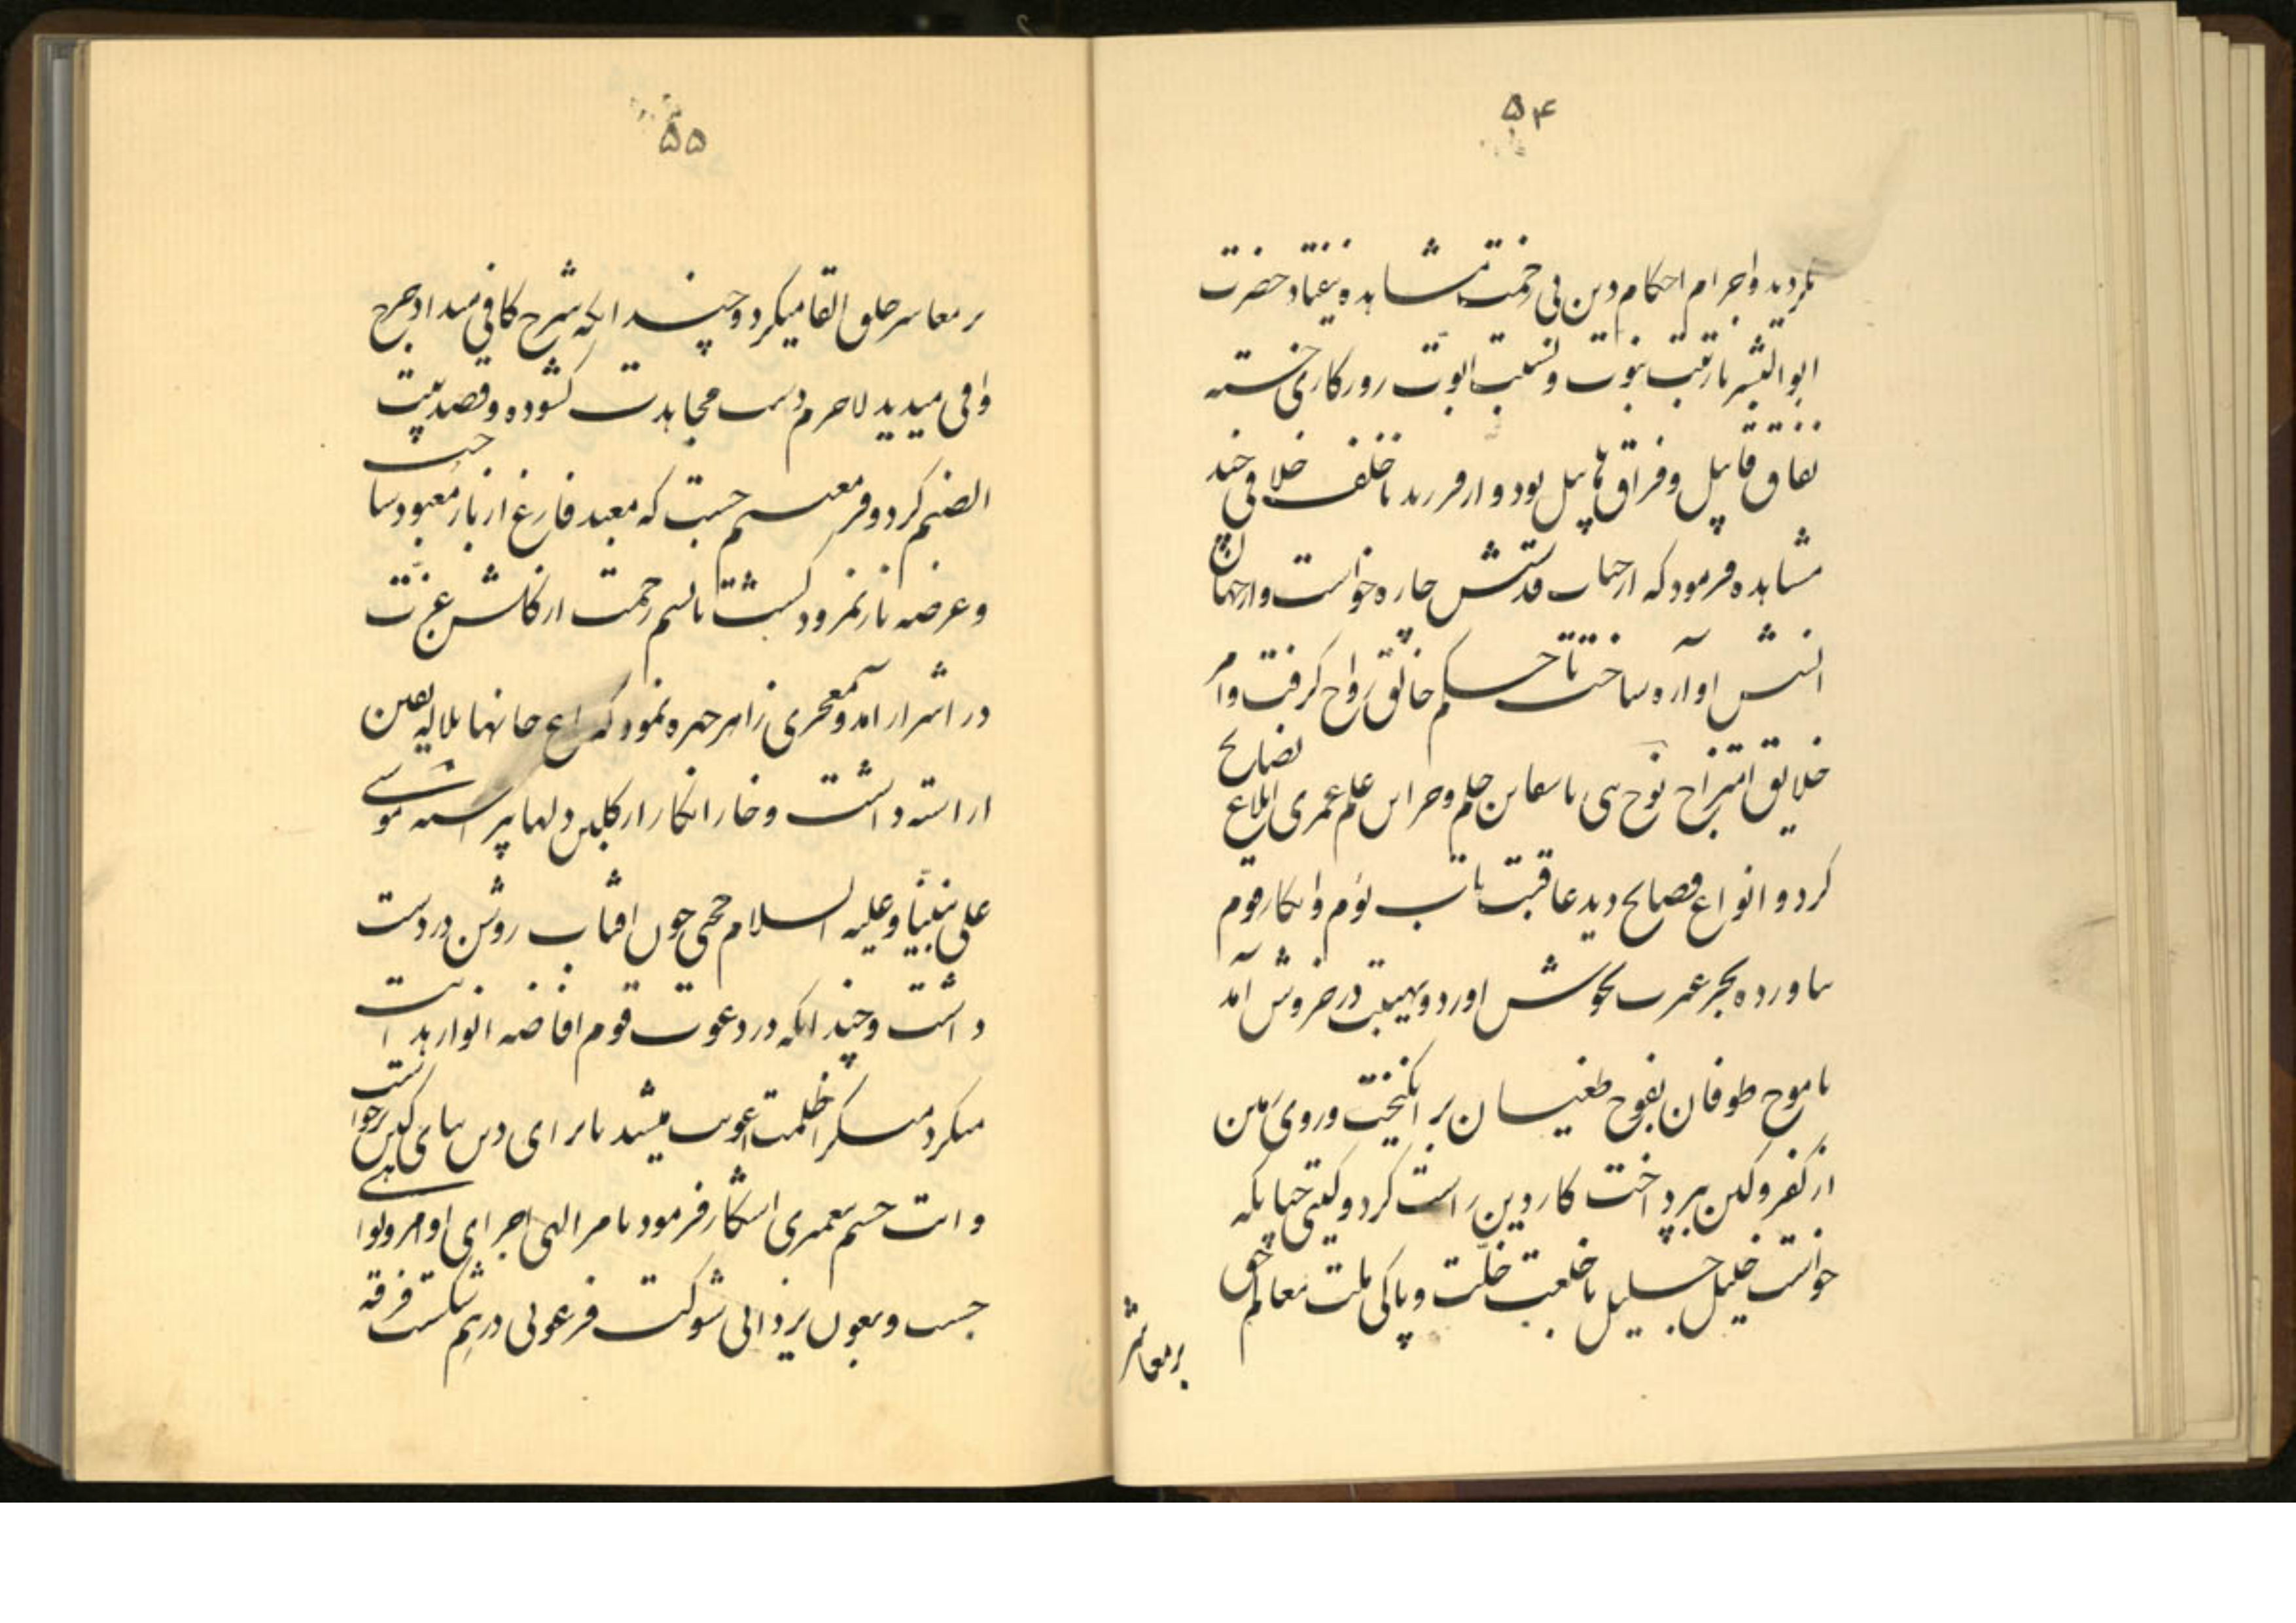 ۵۴
نکردید و اجرام احکام دین بی زحمت مشاهده نیفتاد حضرت
ابوالبشر با رتبت نبوت و نسبت ابوت روزکاری خسته
نفاق قابیل و فراق هابیل بود و از فرزند ناخلف خلافی چند
مشاهده فرمود که از جناب قدسش چاره خواست و از جهان
انسش آواره ساخت تا حکم خالق رواج کرفت و امر
خلایق امتزاج نوح نبی با سفاین حلم و خزاین علم عمری ابلاغ نصایح
کرد و انواع فصایح دید عاقبت تاب لوم و انکار قوم
نیاورده بحر غیرت بجوش اورد و بهیبت در خروش آمد
تا موج طوفان بفوج طغیان بر انکیخت و روی زمین
از کفر و کین بپرداخت کار دین راست کرد و کیتی چنانکه
خواست خلیل جلیل با خلعت خلّت و پاکی ملت معالم حق
بر معاشر
۵۵
بر معاشر خلق القا میکرد و چندانکه شرح کافی میداد جرح
وافی میدید لاجرم دست مجاهدت کشوده و قصد بیت
الصنم کرد و فر معتصم جست که معبد فارغ از بار معبود ساخت
و عرضه نار نمرود کشت تا نسیم رحمت از کلشن عزت
در اسرار آمد و معجزی زاهر چهره نمود که باغ جانها بلاله یقین
اراسته داشت و خار انکار از کلبن دلها پیراسته موسی
علی نبینا و علیه السلام حجتی چون افتاب روشن در دست
داشت و چندانکه در دعوت قوم افاضه انوار هدایت
میکرد منکر ظلمت غوایت میشد تا برای دین بنای کین برخواست
و ایت خشم بعمری اشکار فرمود با مر الهی اجرای اوامر و نواهی
جست و بعون یزدانی شوکت فرعونی در هم شکست فرقه